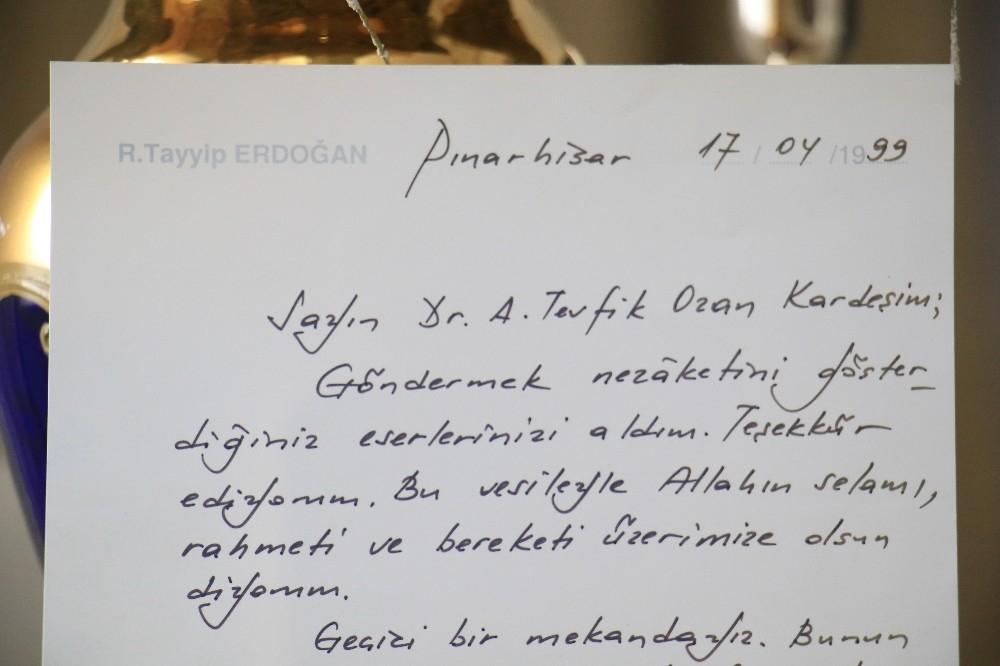 R.Tayyip ERDOĞAN Pınarhisar 17 / 04 / 1999
Sayın Dr. A. Tevfik Ozan Kardeşim;
Göndermek nezâketini göster_
diğiniz eserlerinizi aldım. Teşekkür
ediyorum. Bu vesileyle Allahın selamı,
rahmeti ve bereketi üzerimize olsun
diyorum.
Geçici bir mekandayız. Bunun